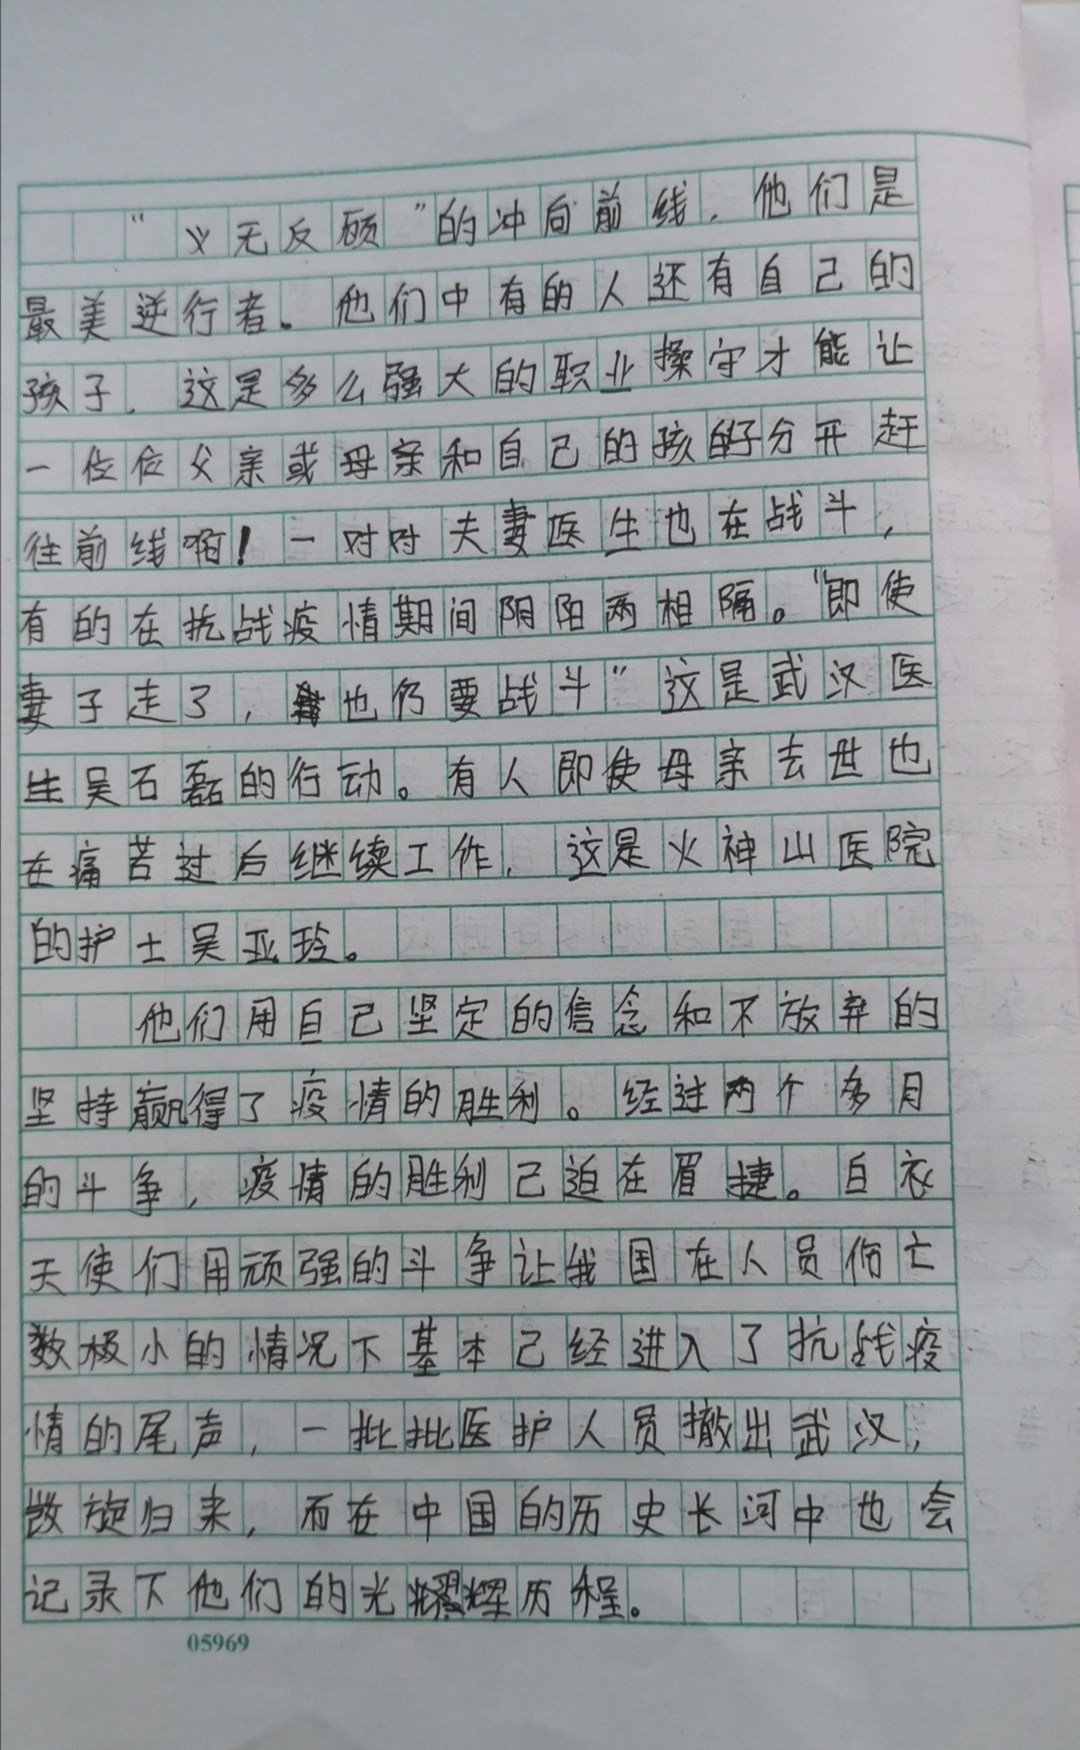 “义无反顾”的冲向前线，他们是
最美逆行者。他们中有的人还有自己的
孩子，这是多么强大的职业操守才能让
一位位父亲或母亲和自己的孩子分开赶
往前线啊！一对对夫妻医生也在战斗，
有的在抗战疫情期间阴阳两相隔。“即使
妻子走了，也仍要战斗”这是武汉医
生吴石磊的行动。有人即使母亲去世也
在痛苦过后继续工作，这是火神山医院
的护士吴亚玲。
他们用自己坚定的信念和不放弃的
坚持赢得了疫情的胜利。经过两个多月
的斗争，疫情的胜利己迫在眉捷。白衣
天使们用顽强的斗争让我国在人员伤亡
数极小的情况下基本己经进入了抗战疫
情的尾声，一批批医护人员撤出武汉，
旋归来，而在中国的历史长河中也会
记录下他们的光辉历程。
05969